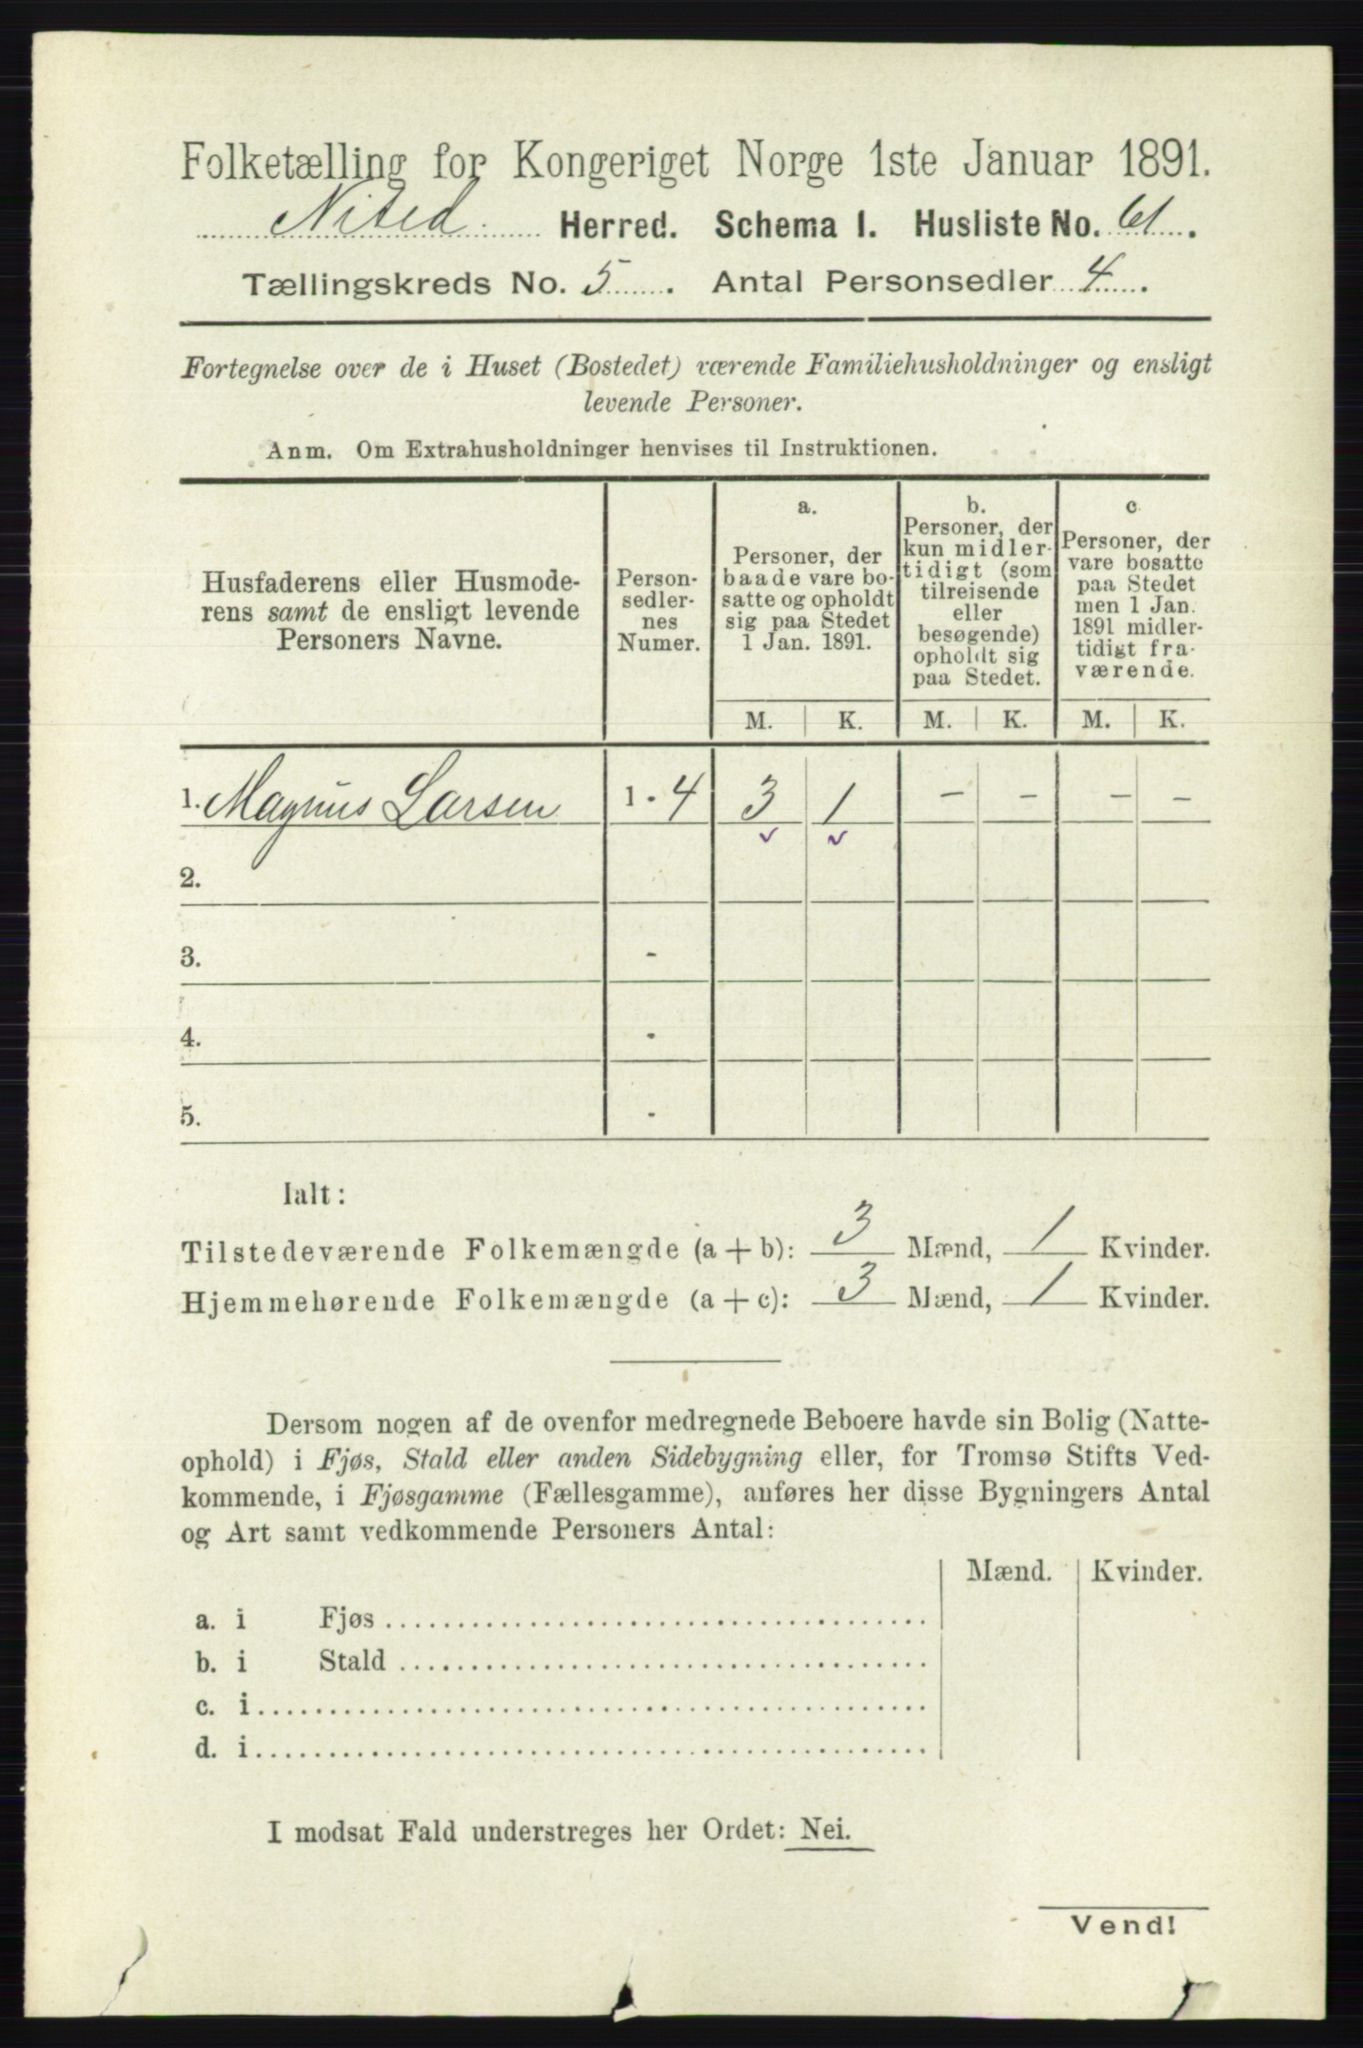 Folketælling for Kongeriget Norge 1ste Januar 1891.
Nited Herred. Schema I. Husliste No. 61.
Tællingskreds No. 5. Antal Personsedler 4.
Fortegnelse over de i Huset (Bostedet) værende Familiehusholdninger og ensligt
levende Personer.
Anm. Om Extrahusholdninger henvises til Instruktionen.
Husfaderens eller Husmode-
rens samt de ensligt levende
Personers Navne.
Person-
sedler-
nes
Numer.
a.
Personer, der
baade vare bo-
satte og opholdt
sig paa Stedet
1 Jan. 1891.
b.
Personer, der
kun midler-
tidigt (som
tilreisende
eller
besøgende)
opholdt sig
paa Stedet.
c
Personer, der
vare bosatte
paa Stedet
men 1 Jan.
1891 midler-
tidigt fra-
værende.
M. K. M. K. M. K.
1. Magnus Larsen 1 - 4 3 1 - - - -
2.
3. -
4. -
5. -
Ialt:
Tilstedeværende Folkemængde (a + b): 3 Mænd, 1 Kvinder.
Hjemmehørende Folkemængde (a + c): 3 Mænd, 1 Kvinder.
Dersom nogen af de ovenfor medregnede Beboere havde sin Bolig (Natte-
ophold) i Fjøs, Stald eller anden Sidebygning eller, for Tromsø Stifts Ved-
kommende, i Fjøsgamme (Fællesgamme), anføres her disse Bygningers Antal
og Art samt vedkommende Personers Antal:
Mænd. Kvinder.
a. i Fjøs
b. i Stald
c. i
d. i
I modsat Fald understreges her Ordet: Nei.
Vend!